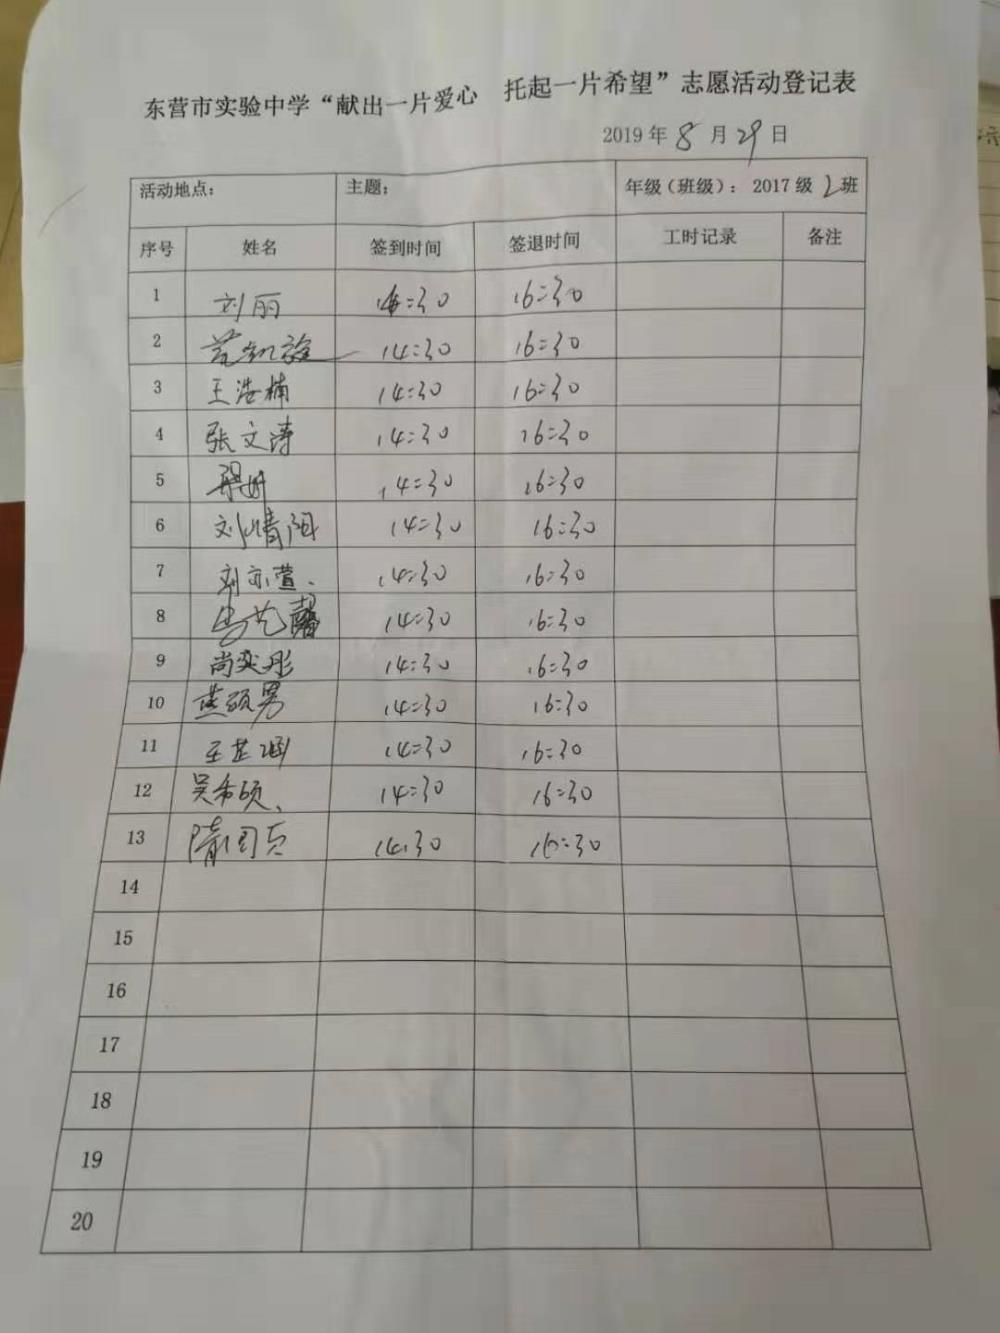 东营市实验中学“献出一片爱心 托起一片希望”志愿活动登记表
2019年8月29日
活动地点： 主题： 年级（班级）：2017级2班
序号 姓名 签到时间 签退时间 工时记录 备注
1 刘丽 14:30 16:30
2 14:30 16:30
3 王浩楠 14:30 16:30
4 张文涛 14:30 16:30
5 14:30 16:30
6 刘晴阳 14:30 16:30
7 刘亦萱 14:30 16:30
8 马艺馨 14:30 16:30
9 尚奕彤 14:30 16:30
10 燕硕男 14:30 16:30
11 王芷涵 14:30 16:30
12 吴希硕 14:30 16:30
13 14:30 16:30
14
15
16
17
18
19
20